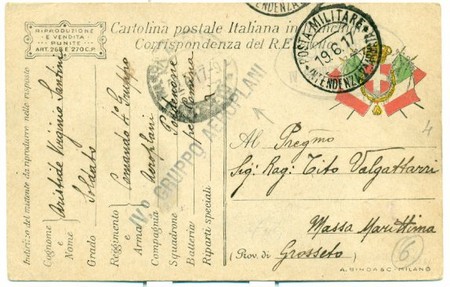 RIPRODUZIONE
E VENDITA
PUNITE
ART. 268 E 270 C.P.
Cartolina postale Italiana in
Corrispondenza del R. E
POSTA MILITARE
INTENDENZA
19.6
Indirizzo del mittente da riprodurre nelle risposte
Cognome e Nome Aristide Virginio Santini
Grado Soldato
Reggimento Comando 4º Gruppo
Arma Aeroplani
Compagnia
Squadrone Pordenone
Batteria
Riparti speciali
IVº GRUPPO AEROPLANI
Al Pregmo
Sig: Rag: Tito Valgattarri
Massa Marittima
(Prov. di Grosseto
4
6
A. RIMOASC. MILANO